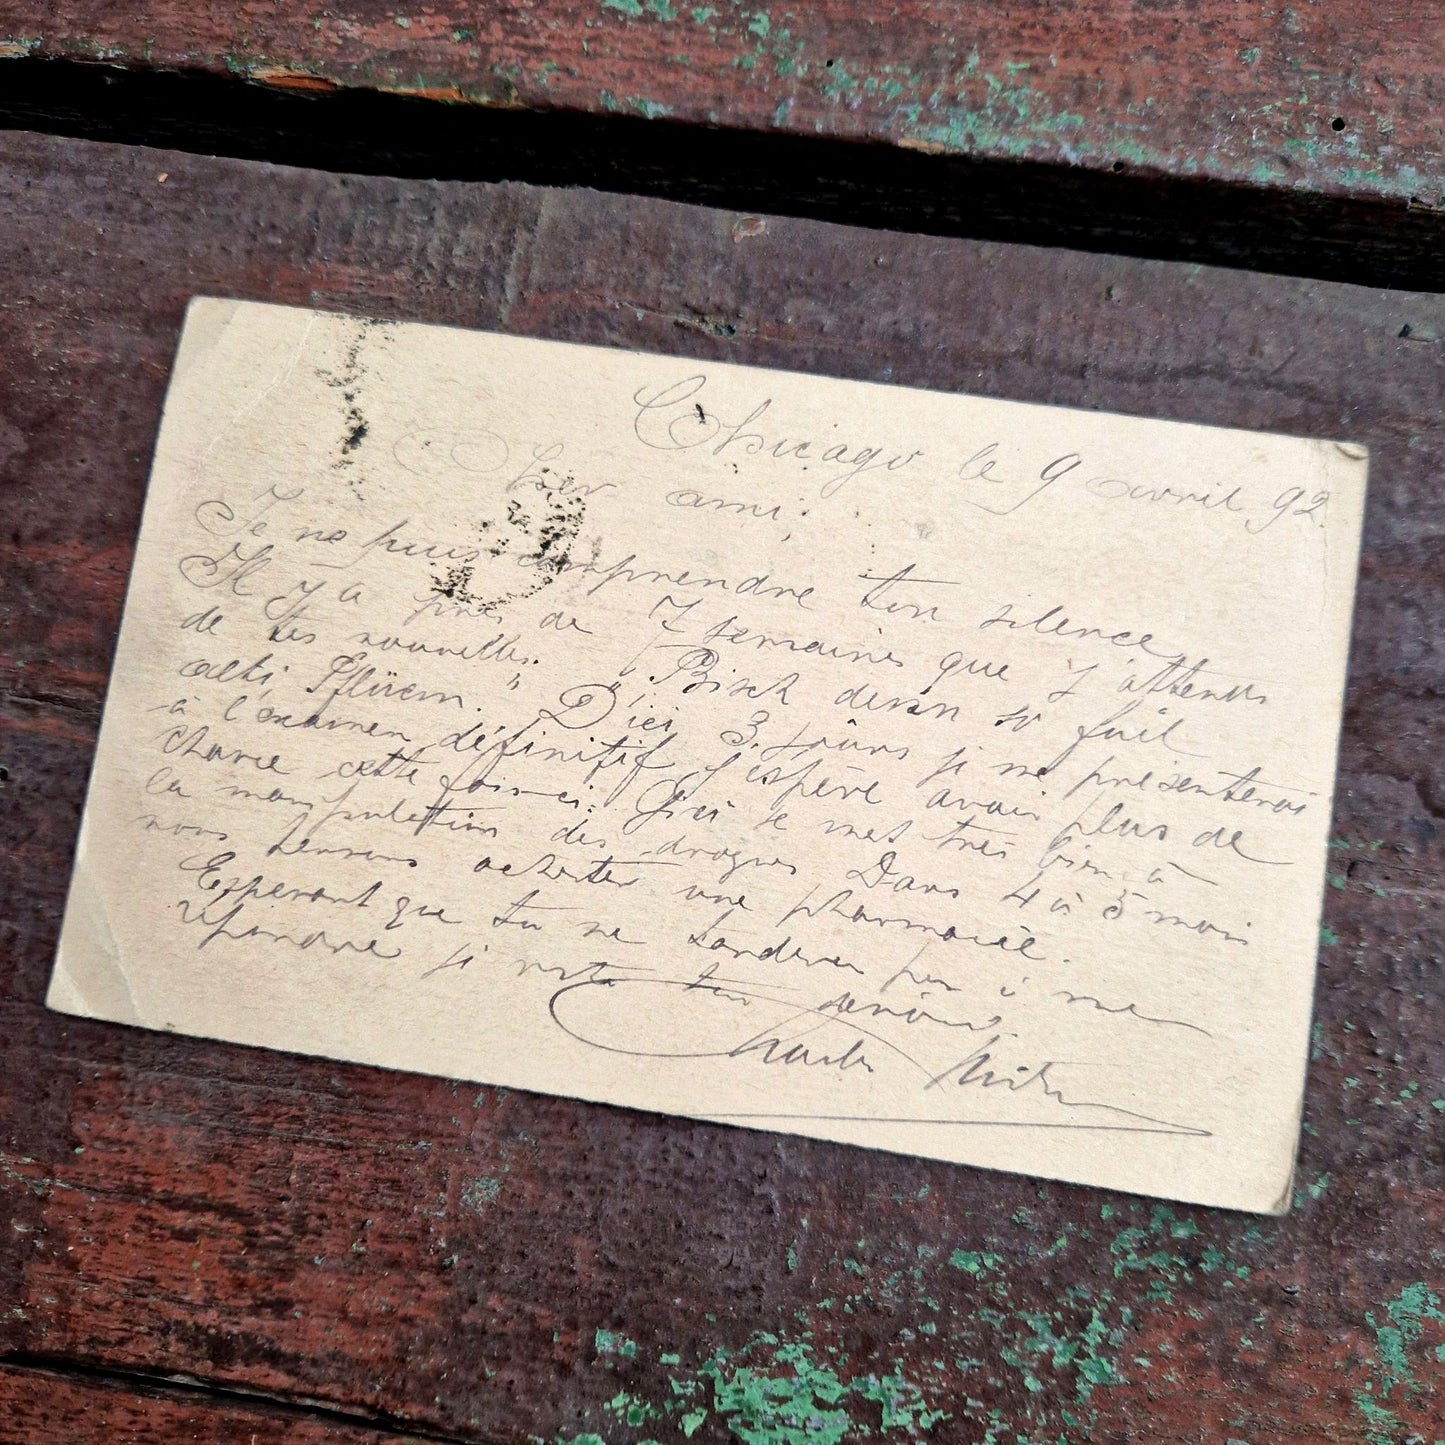 Chicago le 9 avril 92
Cher ami;
Je ne puis comprendre ton silence
Il y a près de 7 semaines que j'attends
de tes nouvelles. " " Bisch denn so fuil
alti Pflüem. D'ici 3 jours je me présenterai
à l'examen définitif j'espère avoir plus de
chance cette fois-ci. se met très bien à
la manipulation des drogues Dans 4 à 5 mois
nous pensons acheter une pharmacie.
Espérant que tu ne tarderas pas à me
répondre je reste ton dévoué.
Charles